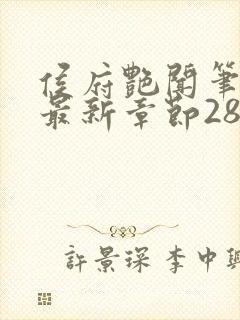 侯府艷聞筆
最新章節28
許景琛李中興